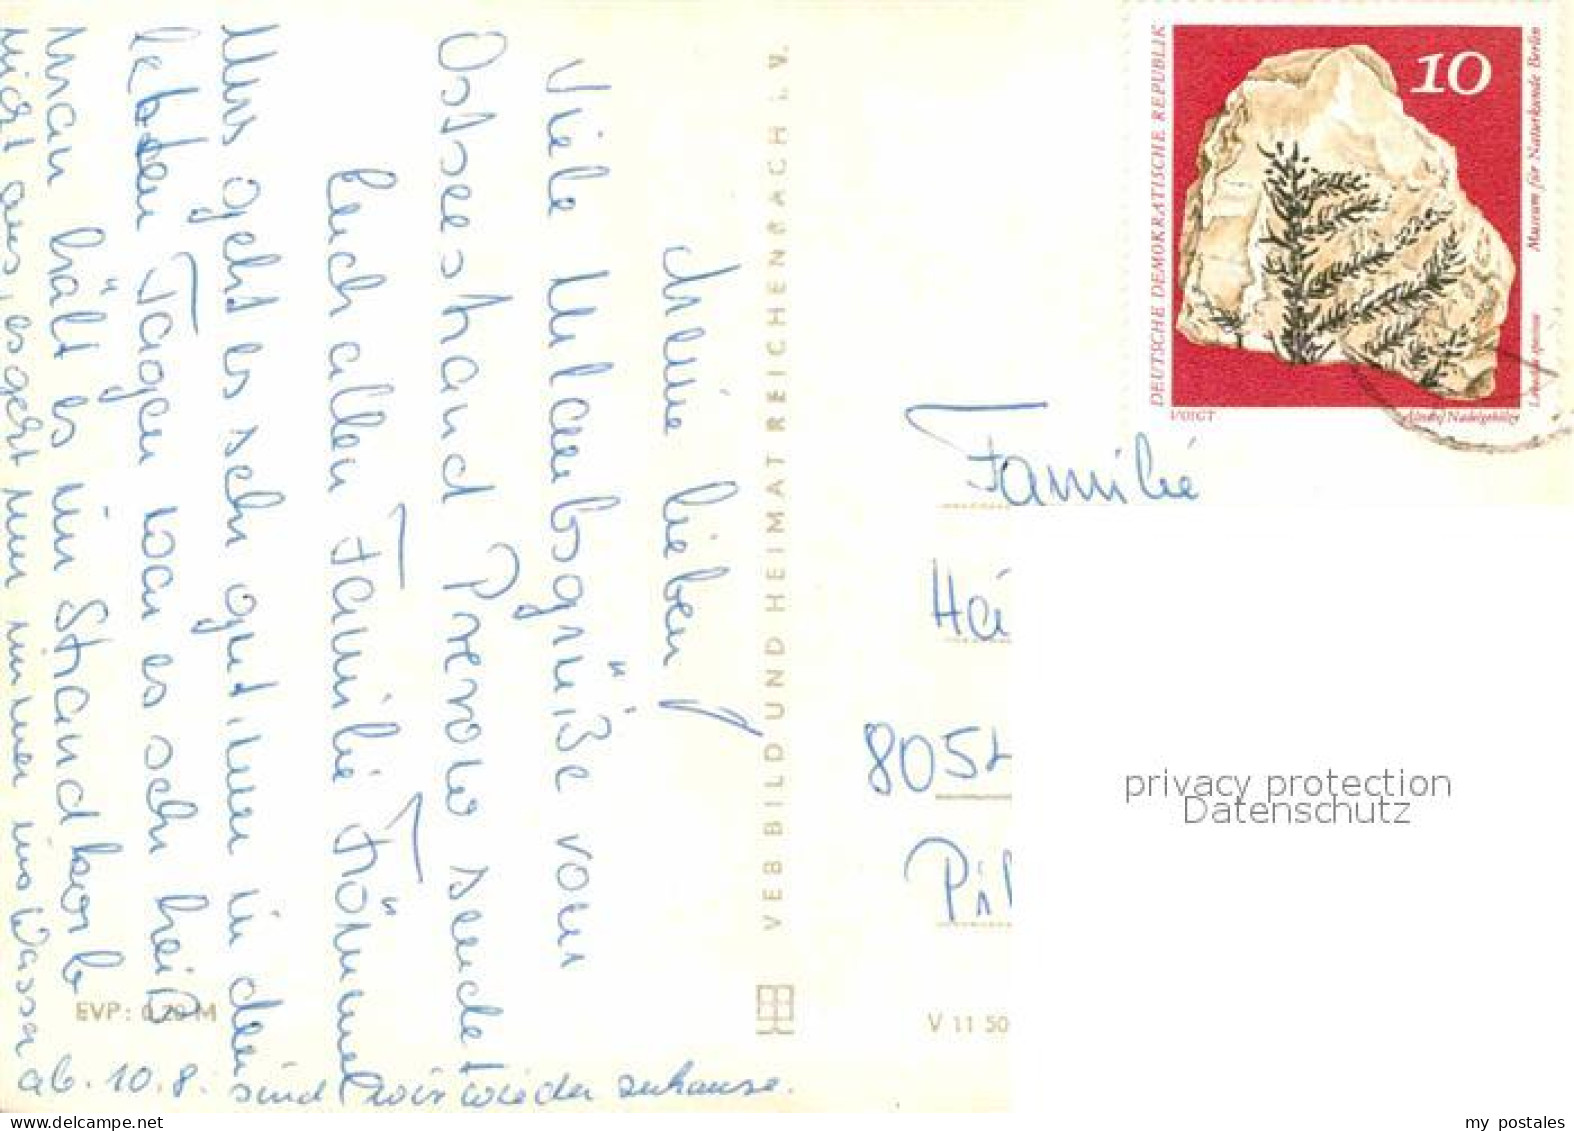 Meine lieben,
Viele Urlaubsgrüße vom
Ostseestrand Prerow sendet
Euch allen Familie Frömmel
Uns geht es sehr gut, nur in den
letzten Tagen war es sehr heiß
man hält es im Strandkorb
nicht aus, es geht nur immer ins Wasser
ab. 10.8. sind wir wieder zuhause.
EVP: 0,20 M
VEB BILD UND HEIMAT REICHENBACH i. V.
V 11 50
DEUTSCHE DEMOKRATISCHE REPUBLIK
10
Museum für Naturkunde Berlin
Lebachia speciosa
VOIGT
Abdruck Nadelgehölz
Familie
Hei
8054
Pil
privacy protection
Datenschutz
my postales